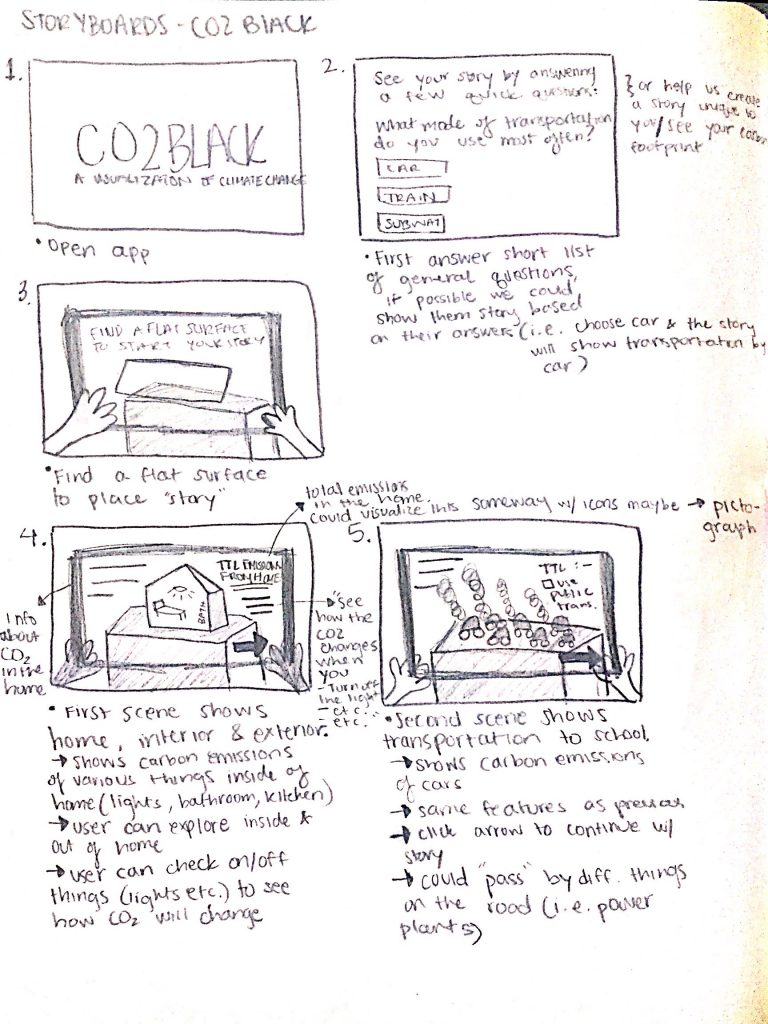 STORYBOARDS - CO2 BLACK
1.
CO2BLACK
A VISUALIZATION OF CLIMATE CHANGE
• Open app
2.
See your story by answering
a few quick questions:
What mode of transportation
do you use most often?
CAR
TRAIN
SUBWAY
} or help us create
a story unique to
you/see your carbon
footprint
• First answer short list
of general questions,
if possible we could
show them story based
on their answers (i.e. choose car & the story
will show transportation by
car)
3.
FIND A FLAT SURFACE
TO START YOUR STORY
• Find a flat surface
to place "story"
4.
total emissions
in the home.
could visualize this someway w/ icons maybe → picto-
graph
TTL EMISSIONS
FROM HOME
BATH
Info
about
CO₂
in the
home
"See
how the
CO2
changes
when
you
- Turn off
the light
- etc.
- etc."
• First scene shows
home, interior & exterior.
→ shows carbon emissions
of various things inside of
home (lights, bathroom, kitchen)
→ user can explore inside &
out of home
→ user can check on/off
things (lights etc.) to see
how CO₂ will change
5.
TTL :-
use
public
trans.
• Second scene shows
transportation to school.
→ shows carbon emissions
of cars
→ same features as previous
→ click arrow to continue w/
story
→ could "pass" by diff. things
on the road (i.e. power
plants)